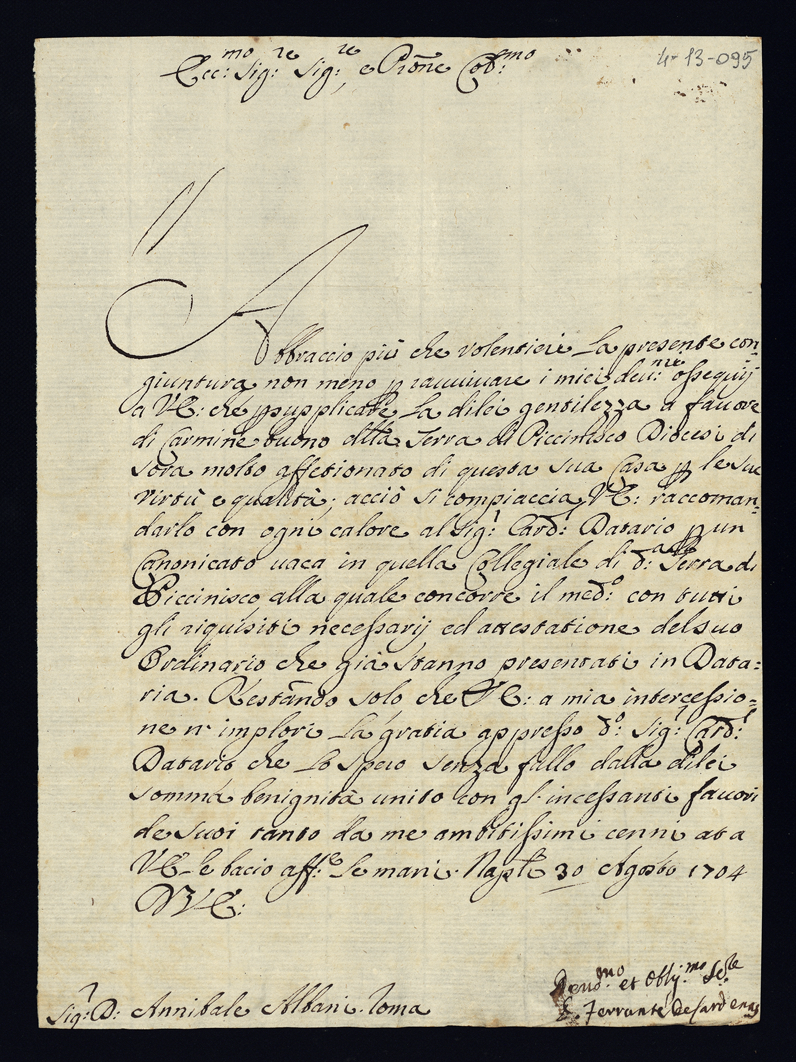 4-13-095
Ecc:mo Sig:re Sig:re, e Prone Col:mo
Abbraccio più che volentieri la presente con=
giuntura non meno p ravvivare i miei deu:mi ossequij
a VE: che p supplicare la di lei gentilezza a favore
di Carmine buono della Terra di Piccinisco Diocesi di
Sora molto affetionato di questa sua Casa p le sue
virtù e qualità; acciò si compiaccia VE: raccoman=
darlo con ogni calore al Sig:r Card: Datario p un
Canonicato vaca in quella Collegiale di d:a Terra di
Piccinisco, alla quale concorre il med:o con tutti
gli riquisiti necessarij ed attestatione del suo
Ordinario che già stanno presentati in Data=
ria. Restando solo che VE: a mia intercessio=
ne n' implori la gratia appresso d:o Sig:r Card:l
Datario che lo spero senza fallo dalla di lei
somma benignità unito con gl' incessanti favori
de suoi tanto da me ambitissimi cenni ed a
VE le bacio aff:e le mani. Nap:li 30 Agosto 1704
D VE:
Deuo:mo et Obbl:mo Se:re
Ferrante de Cardenas
Sig:r D: Annibale Albani. Roma